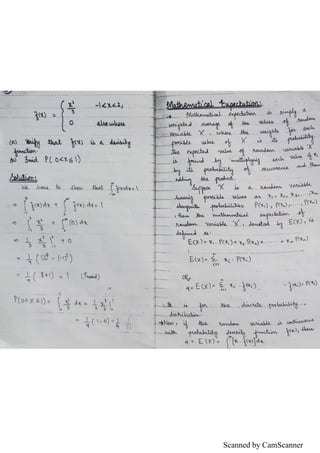 f(x) = { x²/3 -1<x<2;
0 elsewhere
(a) Verify that f(x) is a density
function.
(b) Find P(0<x≤1)
Solution:
We have to show that ∫f(x)dx=1
⇒ ∫f(x)dx + ∫f(x)dx = 1
⇒ ∫ x²/3 + ∫(0)dx
⇒ 1/3 x³/3 | + 0
= 1/9 (2³ - (-1)³)
= 1/9 (8+1) = 1 (Proved)
P(0<x≤1) = ∫ x²/3 dx = 1/3 x³/3 |
= 1/9 (1-0) = 1/9
Mathematical Expectation:
→ Mathematical expectation is simply a
weighted average of the values of random
variable 'X', where the weights for each
possible value of X is its probability.
The expected value of random variable X
is found by multiplying each value of X
by its probability of occurrence and then
adding the product.
Suppose 'X' is a random variable
having possible values as x₁, x₂, ... xₙ
alongwith probabilities P(x₁), P(x₂), ..., P(xₙ)
, then the mathematical expectation of
random variable 'X', denoted by E(X), is
defined as:
E(X) = x₁. P(x₁) + x₂ P(x₂) + ...... + xₙ P(xₙ)
E(X) = Σ xᵢ. P(xᵢ)
OR,
E(X) = Σ xᵢ f(xᵢ) ∴ f(xᵢ) = P(xᵢ)
It is for the discrete probability
distribution
→ Now; if the random variable is continuous
with probability density function f(x), then
E(X) = ∫x. f(x)dx
Scanned by CamScanner